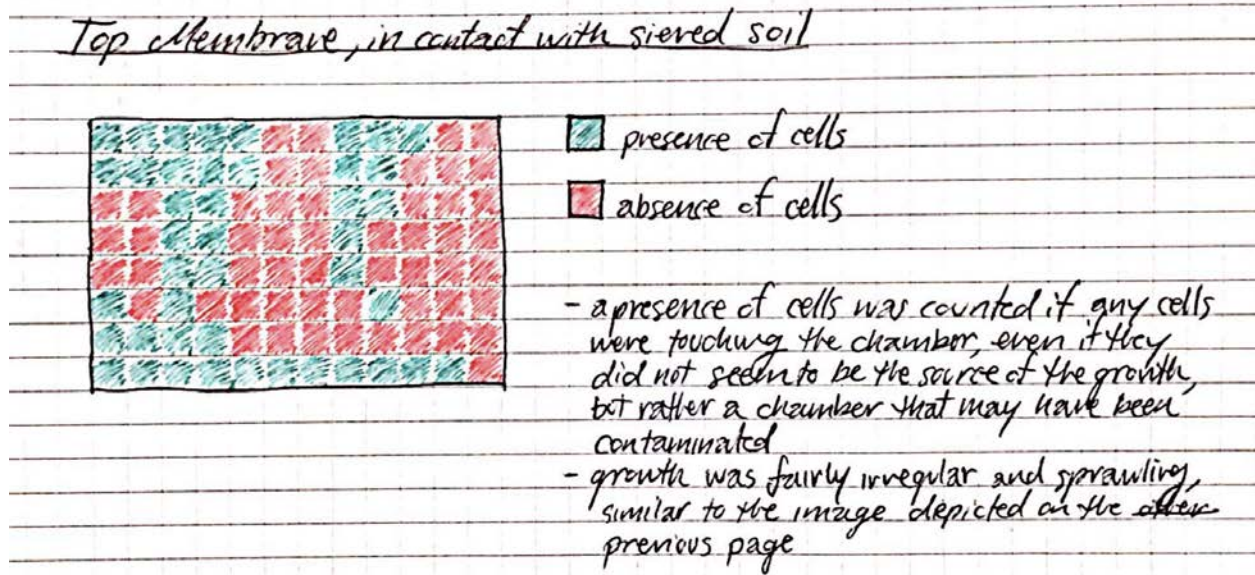 Top Membrane, in contact with sieved soil
presence of cells
absence of cells
- a presence of cells was counted if any cells
were touching the chamber, even if they
did not seem to be the source of the growth,
but rather a chamber that may have been
contaminated
- growth was fairly irregular and sprawling,
similar to the image depicted on the other
previous page